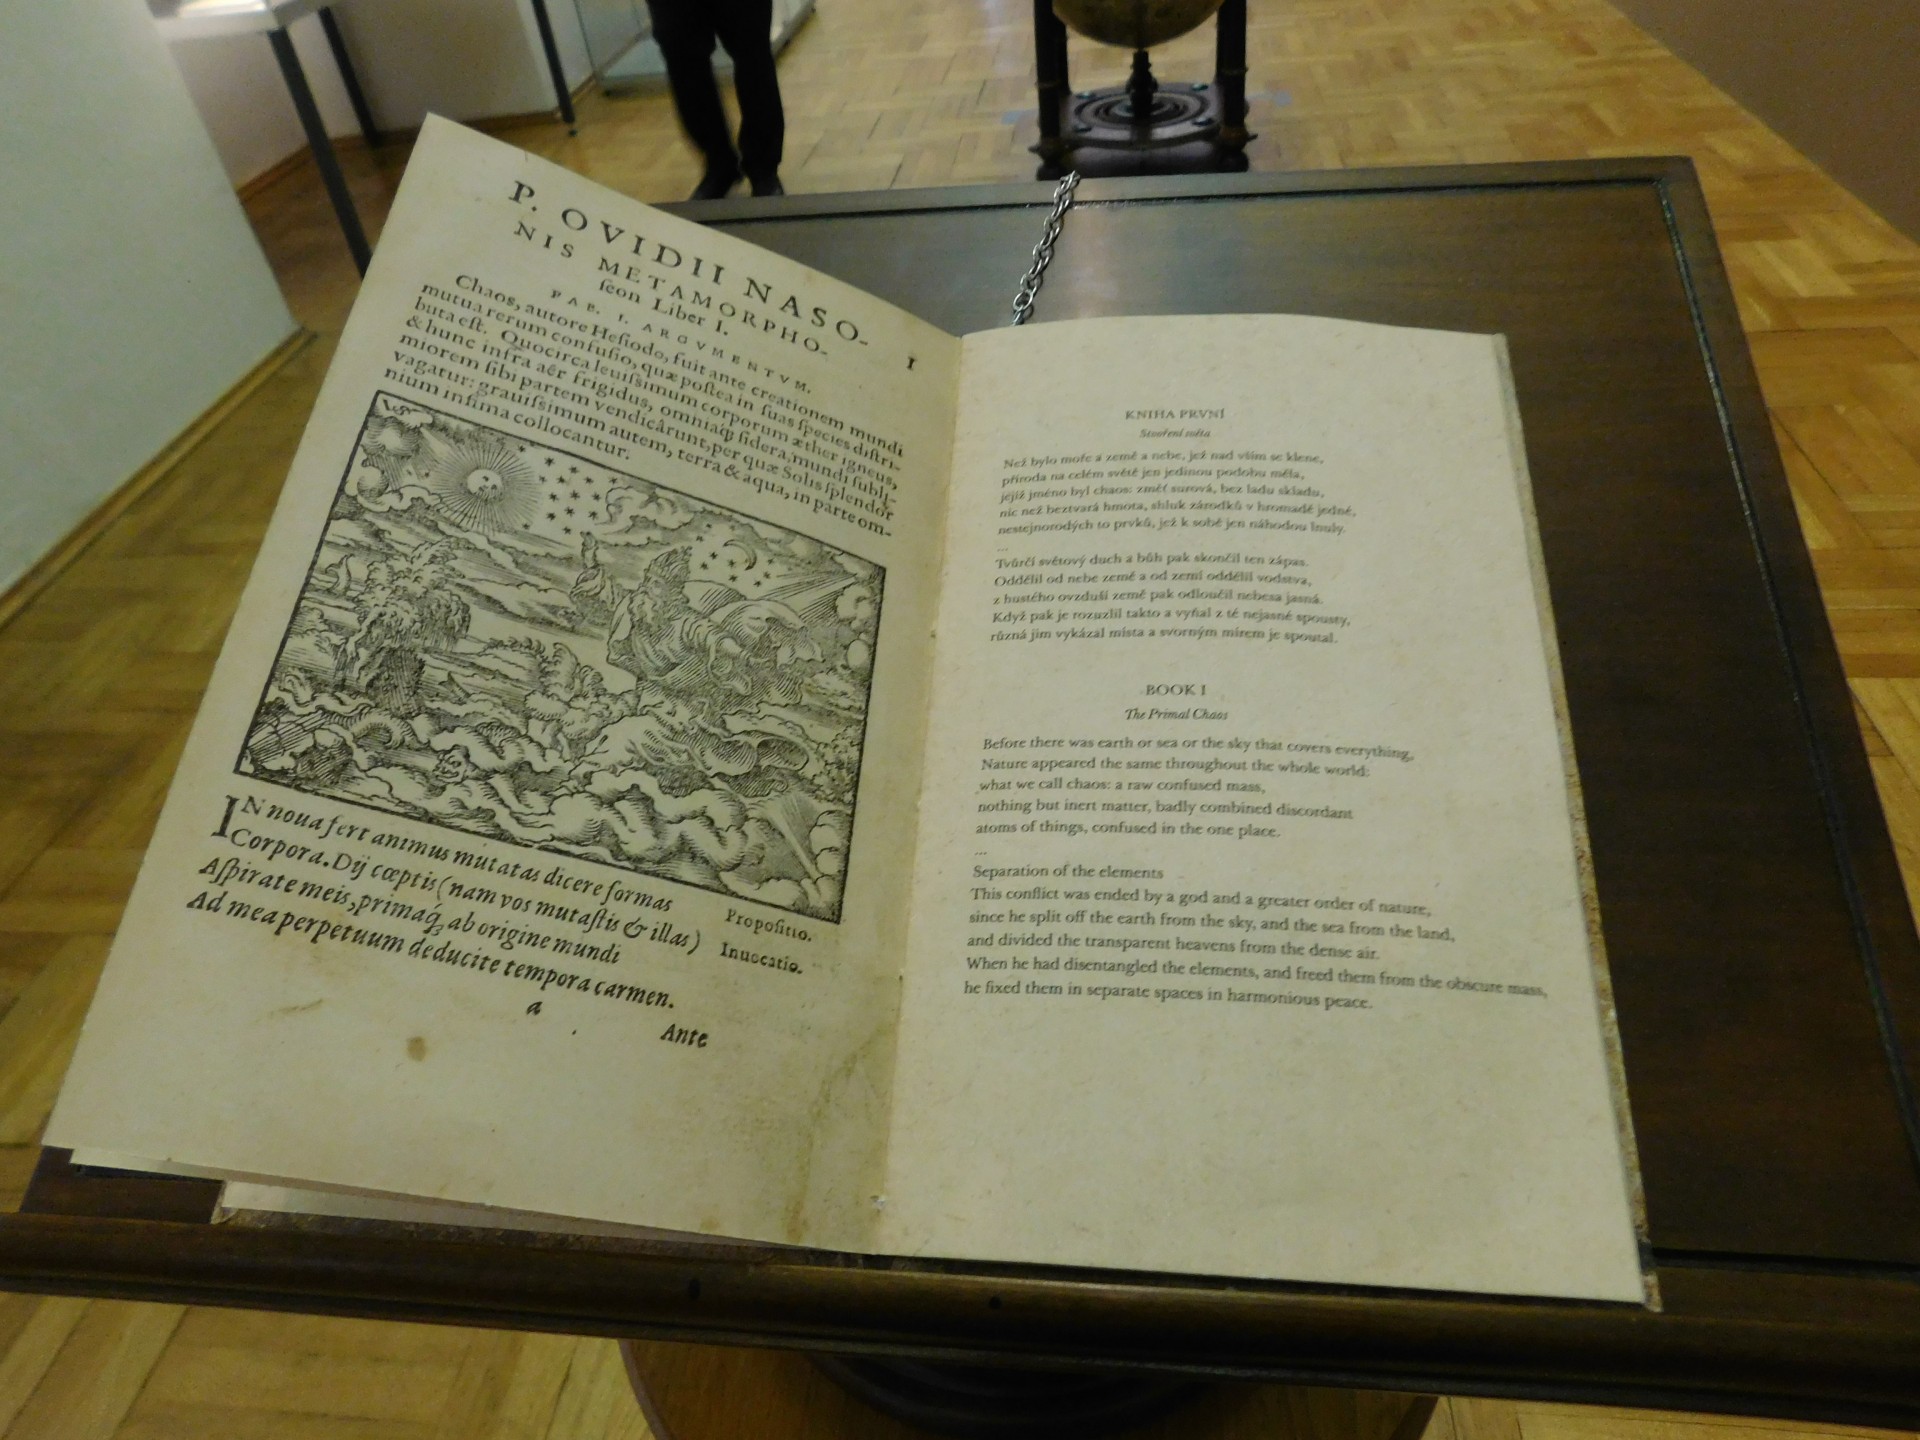 P. OVIDII NASO-
NIS METAMORPHO-
ſeon Liber I.
I
FAB. I. ARGVMENTVM.
Chaos, autore Heſiodo, fuit ante creationem mundi
mutua rerum confuſio, quæ poſtea in ſuas ſpecies diſtri-
buta eſt. Quocirca leuiſsimum corporum æther igneus,
& hunc infra aër frigidus, omniaq́ꝫ ſidera, mundi ſubli-
miorem ſibi partem vendicârunt, per quæ Solis ſplendor
vagatur: grauiſsimum autem, terra & aqua, in parte om-
nium infima collocantur.
IN noua fert animus mutatas dicere formas
Corpora. Dij cœptis (nam vos mutaſtis & illas)
Aſpirate meis, primaq́ꝫ ab origine mundi
Ad mea perpetuum deducite tempora carmen.
Propoſitio.
Inuocatio.
a
Ante
KNIHA PRVNÍ
Stvoření světa
Než bylo moře a země a nebe, jež nad vším se klene,
příroda na celém světě jen jedinou podobu měla,
jejíž jméno byl chaos: změť surová, bez ladu skladu,
nic než beztvará hmota, shluk zárodků v hromadě jedné,
nestejnorodých to prvků, jež k sobě jen náhodou lnuly.
...
Tvůrčí světový duch a bůh pak skončil ten zápas.
Oddělil od nebe země a od zemí oddělil vodstva,
z hustého ovzduší země pak odloučil nebesa jasná.
Když pak je rozuzlil takto a vyňal z té nejasné spousty,
různá jim vykázal místa a svorným mírem je spoutal.
BOOK I
The Primal Chaos
Before there was earth or sea or the sky that covers everything,
Nature appeared the same throughout the whole world:
what we call chaos: a raw confused mass,
nothing but inert matter, badly combined discordant
atoms of things, confused in the one place.
...
Separation of the elements
This conflict was ended by a god and a greater order of nature,
since he split off the earth from the sky, and the sea from the land,
and divided the transparent heavens from the dense air.
When he had disentangled the elements, and freed them from the obscure mass,
he fixed them in separate spaces in harmonious peace.